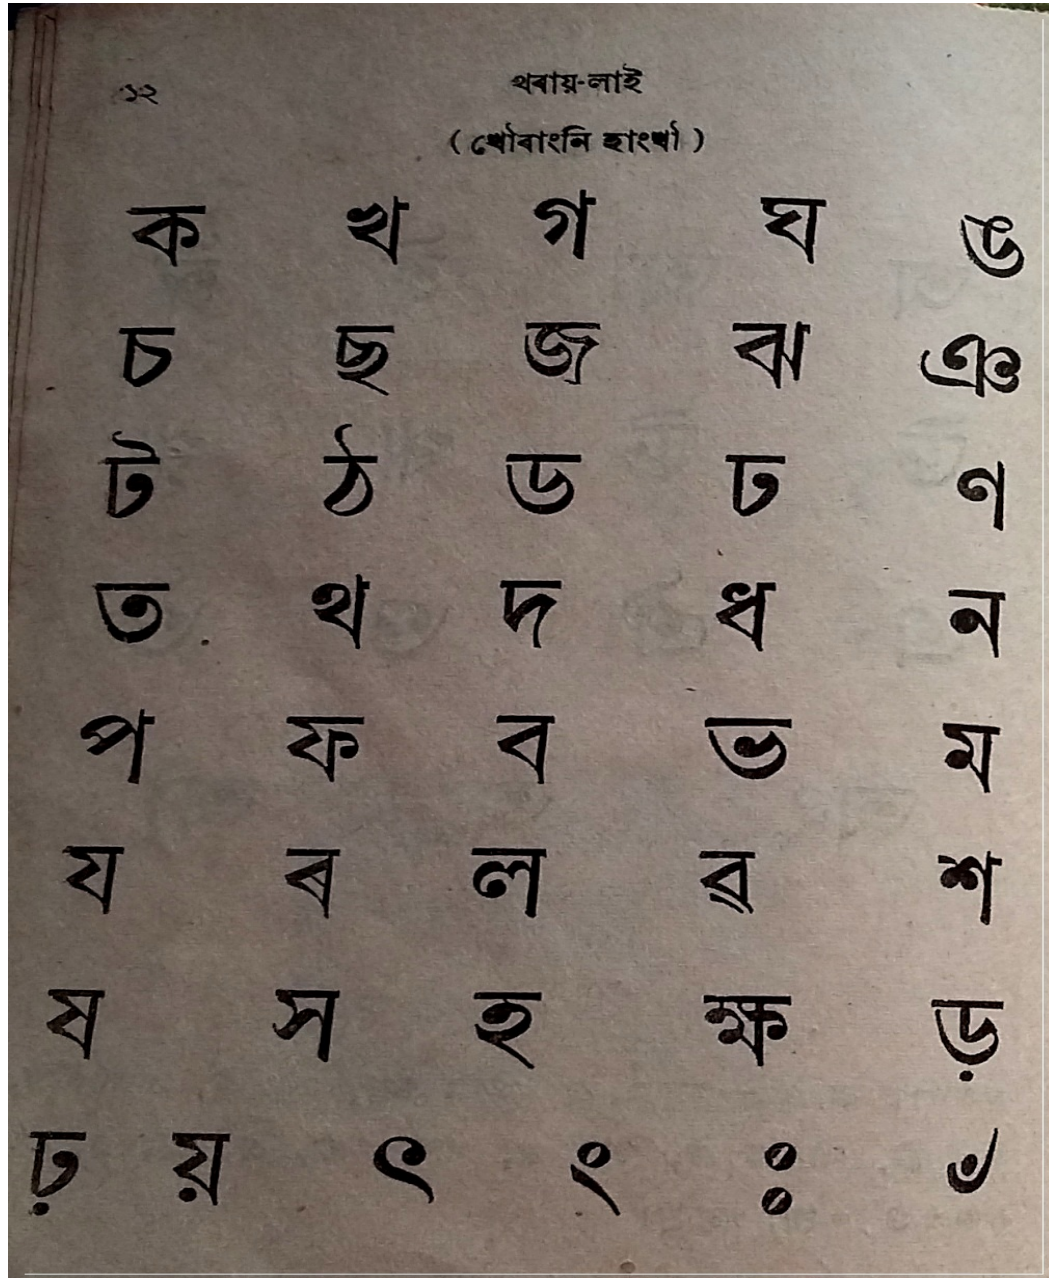 ১২ থৰায়-লাই
( খৌৰাংনি হাংখৗ )
ক খ গ ঘ ঙ
চ ছ জ ঝ ঞ
ট ঠ ড ঢ ণ
ত থ দ ধ ন
প ফ ব ভ ম
য ৰ ল ৱ শ
ষ স হ ক্ষ ড়
ঢ় য় ৎ ং ঃ ঁ